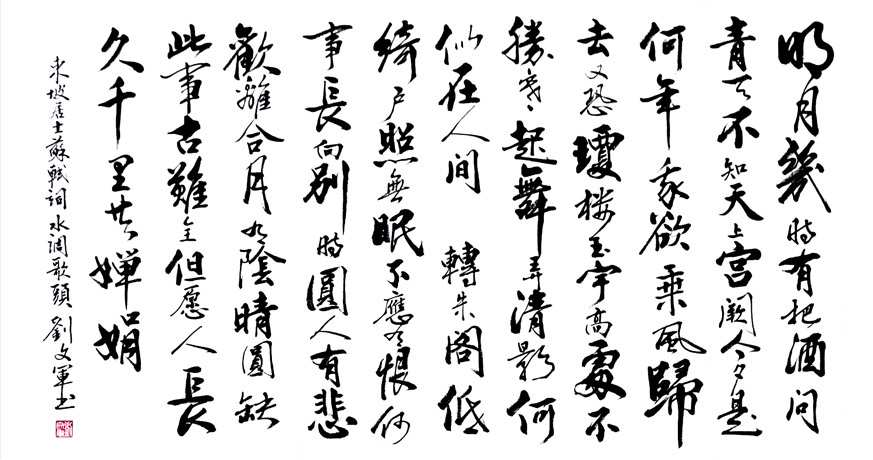 明月幾時有把酒問
青天不知天上宮闕今夕是
何年我欲乘風歸
去又恐瓊楼玉宇高處不
勝寒起舞弄清影何
似在人间 轉朱阁低
綺户照無眠不應有恨何
事長向别時圓人有悲
歡離合月有陰晴圓缺
此事古難全但愿人長
久千里共婵娟
東坡居士蘇軾詞水调歌頭 劉文軍书